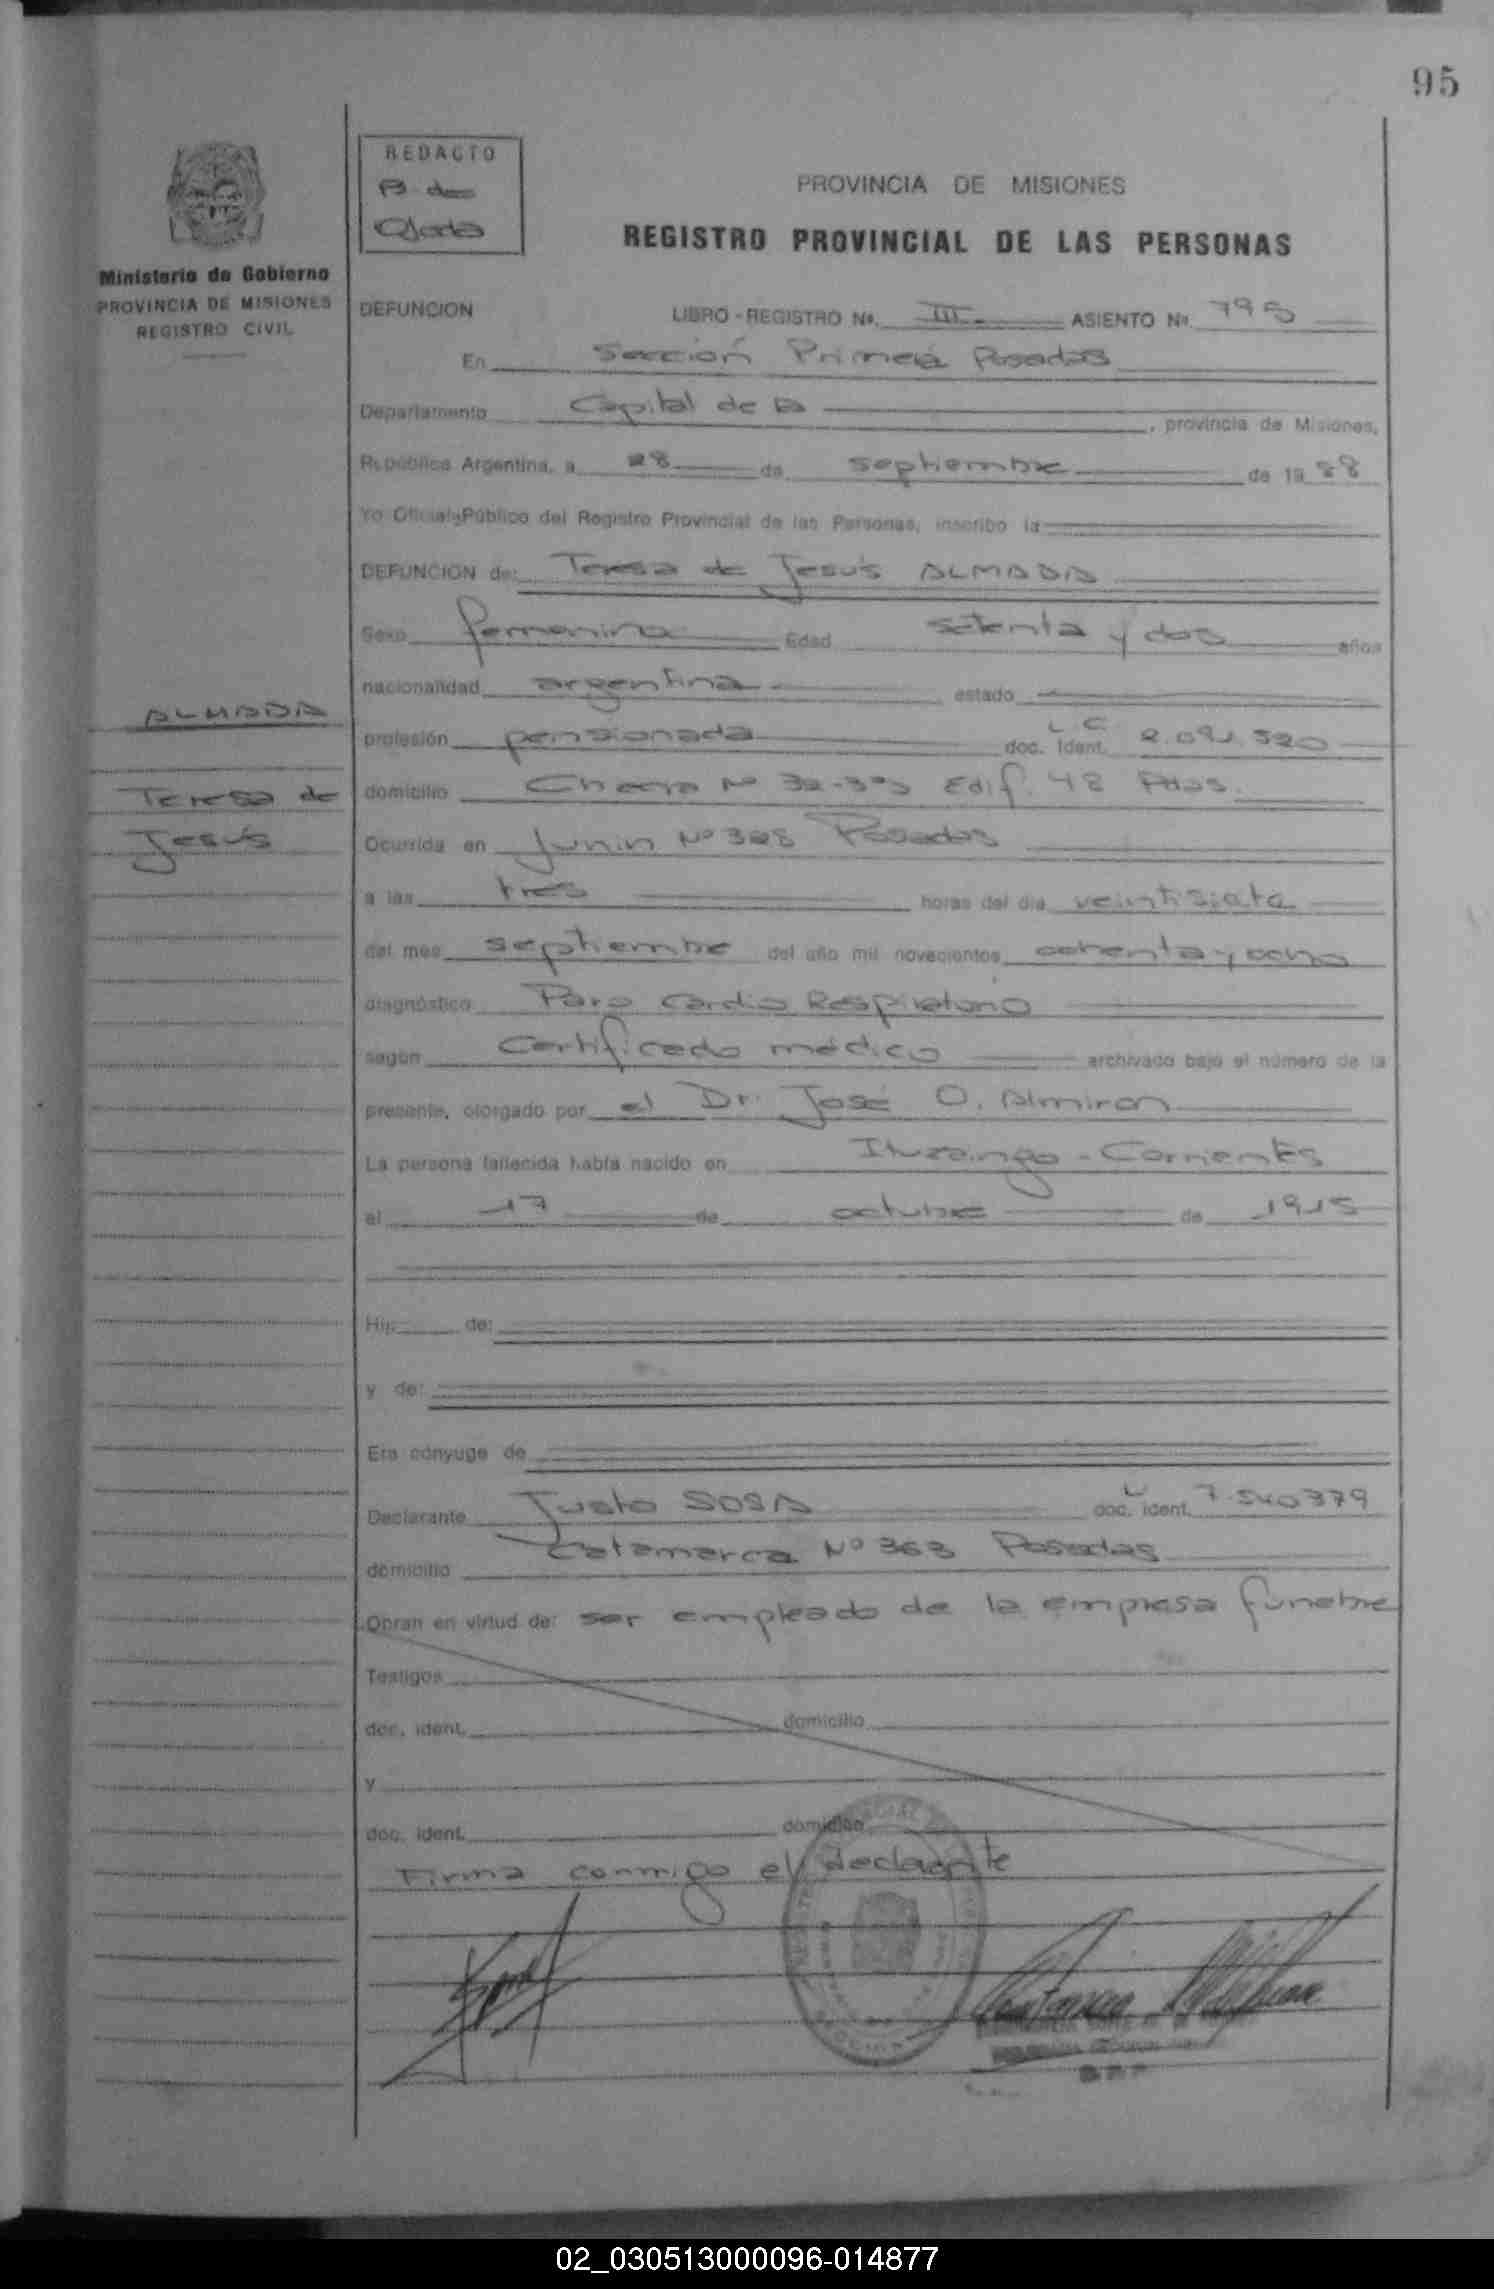 95
REDACTO
B. de
Ojeda
PROVINCIA DE MISIONES
REGISTRO PROVINCIAL DE LAS PERSONAS
Ministerio de Gobierno
PROVINCIA DE MISIONES
REGISTRO CIVIL
DEFUNCION LIBRO - REGISTRO Nº. III ASIENTO Nº. 795
En Sección Primera Posadas
Departamento Capital de la , provincia de Misiones,
República Argentina, a 28 de septiembre de 19 88
Yo Oficial Público del Registro Provincial de las Personas, inscribo la
DEFUNCION de: Teresa de Jesús ALMADA
Sexo femenino Edad setenta y dos años
nacionalidad argentina estado
ALMADA
profesión pensionada doc. ident. L C 2.091.520
Teresa de
domicilio Chacra Nº 32-33 Edif. 48 Pdas.
Jesús
Ocurrida en Junin Nº 328 Posadas
a las tres horas del día veintisiete
del mes septiembre del año mil novecientos ochenta y ocho
diagnóstico Paro Cardio Respiratorio
según Certificado médico archivado bajo el número de la
presente, otorgado por el Dr. José O. Almiron
La persona fallecida había nacido en Ituzaingo - Corrientes
el 17 de octubre de 1915
Hij de:
y de:
Era cónyuge de
Declarante Justo SOSA doc. ident. 7.540379
domicilio Catamarca Nº 363 Posadas
Obran en virtud de: ser empleado de la empresa funebre
Testigos
doc. ident. domicilio
y
doc. ident. domicilio
Firma conmigo el declarante
02_030513000096-014877